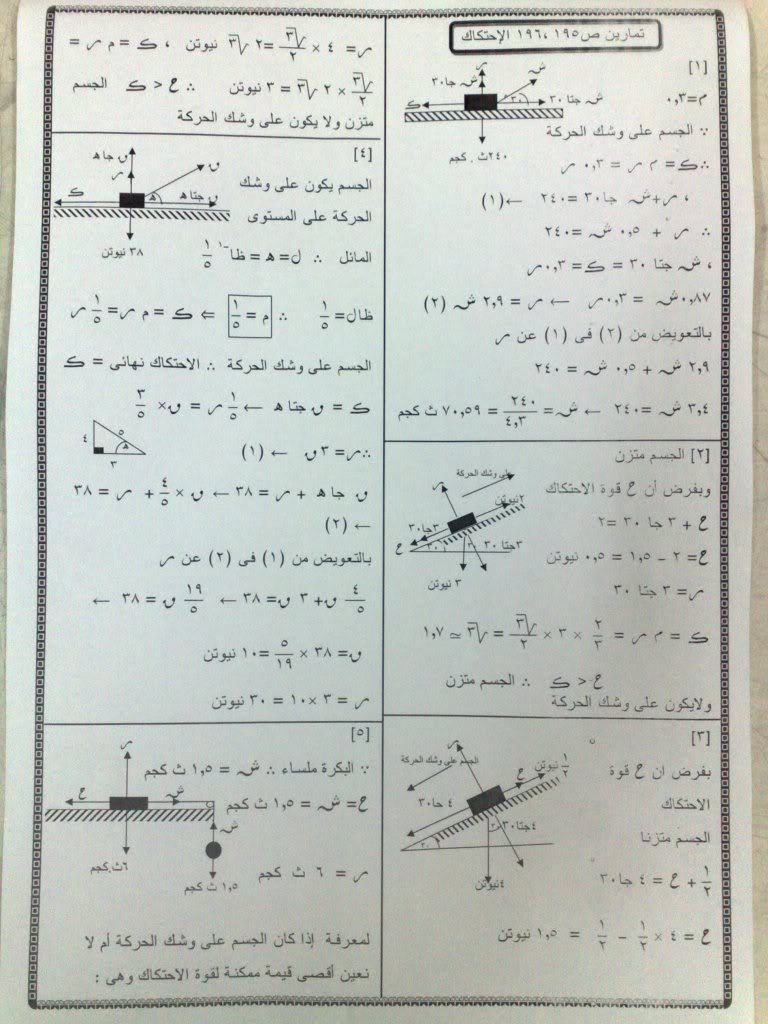 تمارين ص١٩٥ ،١٩٦ الإحتكاك
[١]
م=٠,٣
ر
ش جا٣٠
ش
٣٠
ش جتا ٣٠
ك
٢٤٠ث . كجم
∵ الجسم على وشك الحركة
∴ك = م ر = ٠,٣ ر
، ر+ش جا٣٠ =٢٤٠ ←(١)
∴ ر + ٠,٥ ش =٢٤٠
، ش جتا ٣٠ = ك =٠,٣ر
٠,٨٧ش = ٠,٣ر ← ر = ٢,٩ ش (٢)
بالتعويض من (٢) فى (١) عن ر
٢,٩ ش + ٠,٥ ش = ٢٤٠
٣,٤ ش =٢٤٠ ← ش= ٢٤٠/٤,٣ = ٧٠,٥٩ ث كجم
[٢] الجسم متزن
وبفرض أن ح قوة الاحتكاك
على وشك الحركة
ر
٢نيوتن
٣جا٣٠
٣جتا ٣٠
ح
٣٠
٣٠
٣ نيوتن
ح + ٣ جا ٣٠ =٢
ح= ٢ − ١,٥ = ٠,٥ نيوتن
ر= ٣ جتا ٣٠
ك = م ر = ٢/٣ × ٣ × √٣/٢ = √٣ ≃ ١,٧
ح < ك ∴ الجسم متزن
ولايكون على وشك الحركة
[٣]
بفرض ان ح قوة
الاحتكاك
الجسم متزنا
ر
الجسم على وشك الحركة
١/٢ نيوتن
ح
٤ جا٣٠
٤جتا٣٠
٣٠
٣٠
٤نيوتن
١/٢ + ح = ٤ جا٣٠
ح = ٤ × ١/٢ − ١/٢ = ١,٥ نيوتن
ر= ٤ × √٣/٢ =٢ √٣ نيوتن ، ك = م ر =
√٣/٢ × ٢ √٣ = ٣ نيوتن ∴ ح < ك الجسم
متزن ولا يكون على وشك الحركة
[٤]
ق جا ه
ر
ق
ك
ه
ق جتا ه
٣٨ نيوتن
الجسم يكون على وشك
الحركة على المستوى
المائل ∴ ل= ه = ظا⁻¹ ١/٥
ظال= ١/٥ ∴ م = ١/٥ ⇐ ك = م ر= ١/٥ ر
الجسم على وشك الحركة ∴ الاحتكاك نهائى = ك
ك = ق جتا ه ← ١/٥ ر = ق× ٣/٥
∴ر= ٣ ق ← (١)
٤
٥
ه
٣
ق جا ه + ر = ٣٨ ← ق × ٤/٥ + ر = ٣٨
← (٢)
بالتعويض من (١) فى (٢) عن ر
٤/٥ ق+ ٣ ق= ٣٨ ← ١٩/٥ ق = ٣٨ ←
ق= ٣٨ × ٥/١٩ =١٠ نيوتن
ر = ٣ ×١٠ = ٣٠ نيوتن
[٥]
ر
ح
ش
ش
٦ث.كجم
١,٥ ث كجم
∵ البكرة ملساء ∴ ش = ١,٥ ث كجم
ح= ش = ١,٥ ث كجم
ر = ٦ ث كجم
لمعرفة إذا كان الجسم على وشك الحركة أم لا
نعين أقصى قيمة ممكنة لقوة الاحتكاك وهى :